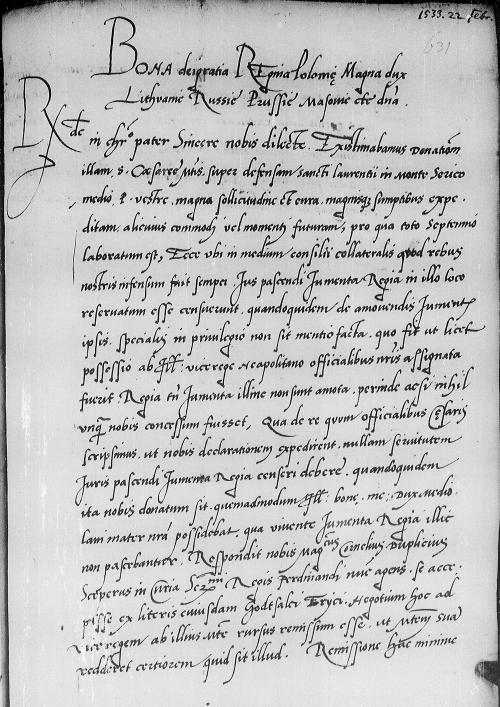 1533. 22 febr.
631
BONA dei gratia REgina Polonię Magna dux
Lithvanie Russie Prussie Masovie etc dna.
Rx de in chro pater Sincere nobis dilecte. Existimabamus Donationem
illam. S. Cæsareę Mtis. super defensam Sancti laurentii in Monte Serico
medio. P. vestre. magna sollicitudine et cura. magnisque sumptibus expe
ditam. alicuius commodi vel momenti futuram, pro qua toto Septennio
laboratum est, Ecce ubi in medium consilii collateralis quod rebus
nostris infensum fuit semper. Jus pascendi Jumenta Regia in illo loco
reservatum esse censuerunt. quandoquidem de amovendis Jumentis
ipsis. specialis in privilegio non sit mentio facta. quo fit ut licet
possessio ab Ill. vicerege Neapolitano officialibus nris assignata
fuerit. Regia tn Jumenta illinc non sunt amota. perinde ac si nihil
unq nobis concessum fuisset, Qua de re quum officialibus Cęsaris
scripsimus. ut nobis declarationem expedirent. nullam servitutem
Juris pascendi Jumenta Regia censeri debere. quandoquidem
ita nobis donatum sit. quemadmodum Ill. bone. me. Dux Medio
lani mater nra possidebat. qua vivente Jumenta Regia illic
non pascebantur. Respondit nobis Magcus Cornelius Duplicius
Sceperus in Curia Sermi Regis Ferdinandi nunc agens. se acce
pisse ex literis cuiusdam Godtsalci Eryci. Negotium hoc ad
viceregem ab illius Mte rursus remissum esse. ut Mtem sua
redderet certiorem quid sit illud. Remissione hac minime